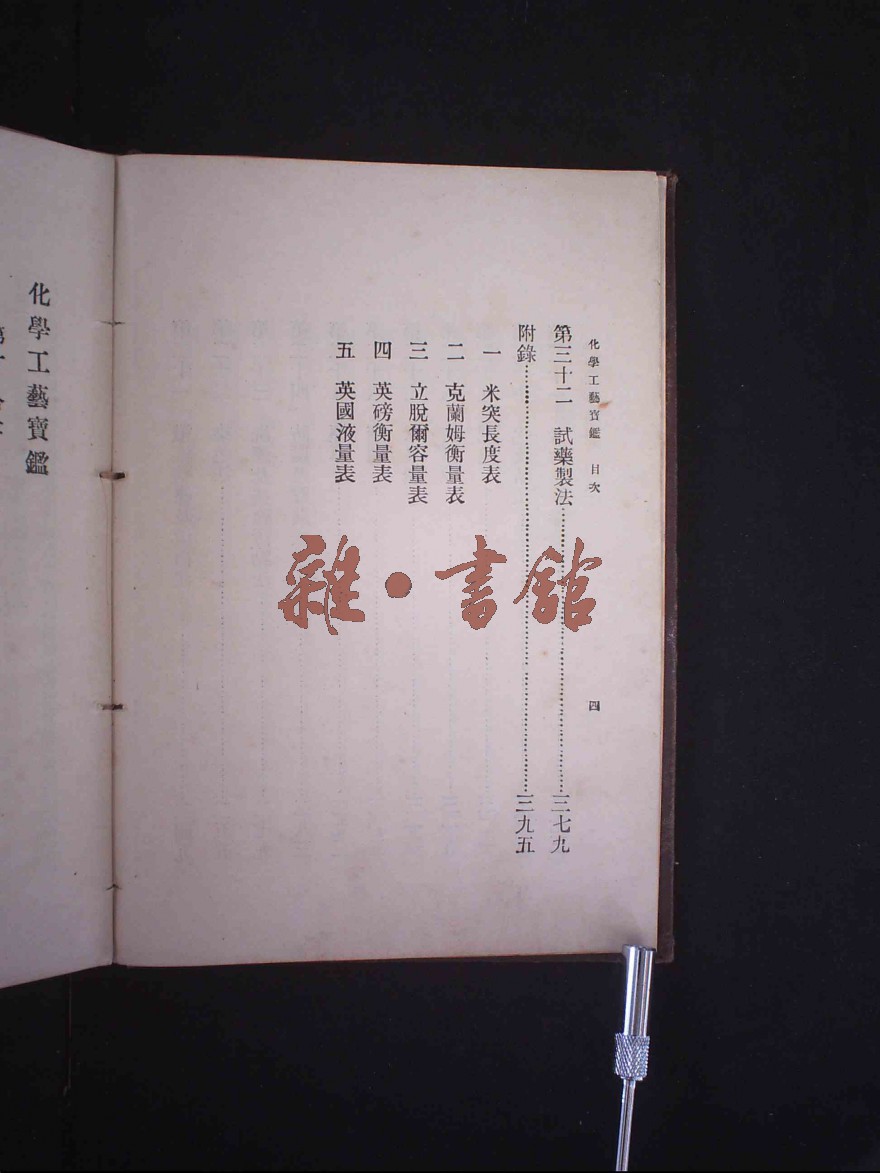 化學工藝寶鑑 目次 四
第三十二 試藥製法 三七九
附錄 三九五
一 米突長度表
二 克蘭姆衡量表
三 立脫爾容量表
四 英磅衡量表
五 英國液量表
化學工藝寶鑑
雜·書館